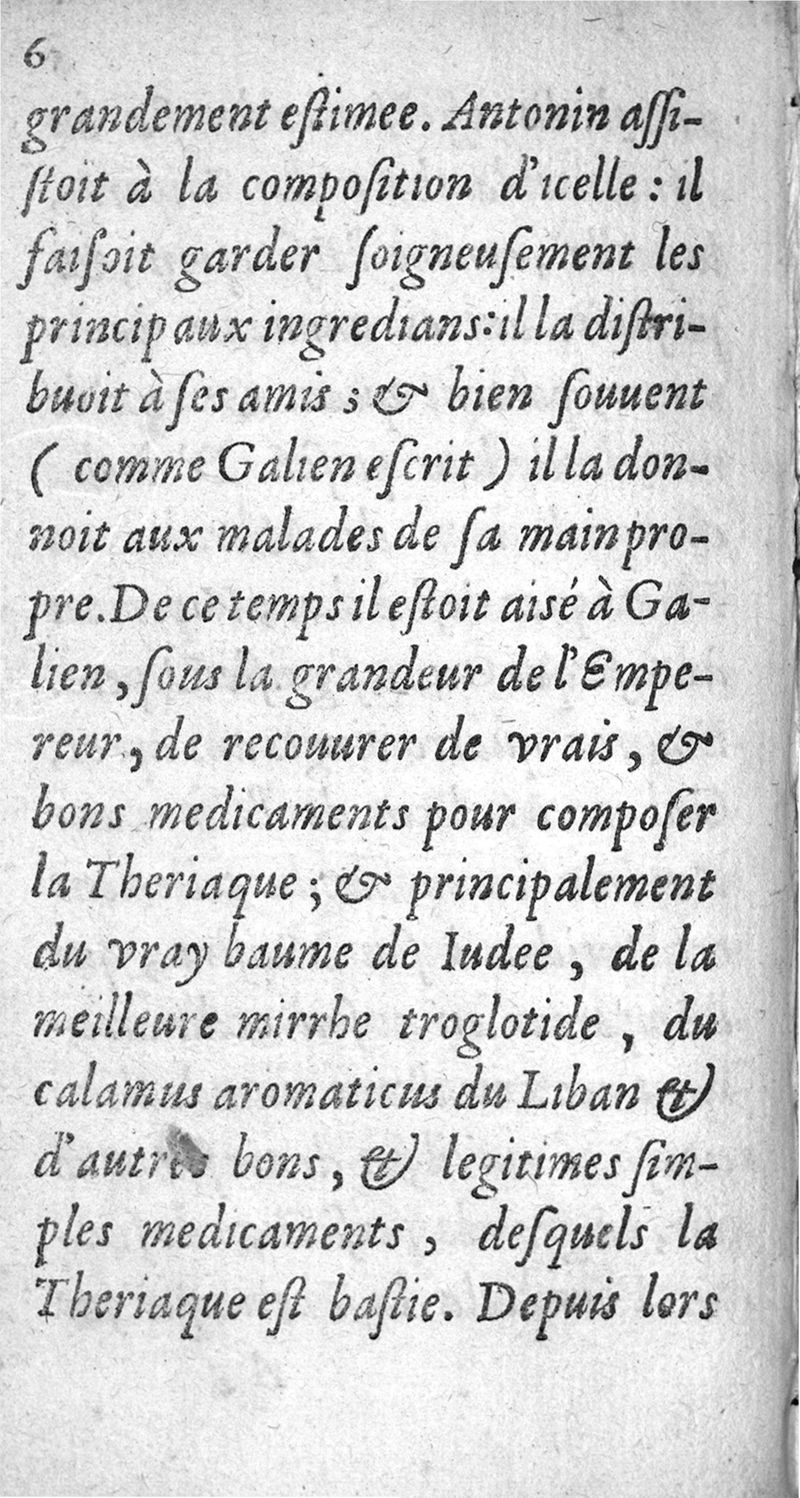 6
grandement eſtimee. Antonin aſſi-
ſtoit à la compoſition d'icelle : il
faiſoit garder ſoigneuſement les
principaux ingredians: il la diſtri-
buoit à ſes amis ; & bien ſouuent
( comme Galien eſcrit ) il la don-
noit aux malades de ſa main pro-
pre. De ce temps il eſtoit aisé à Ga-
lien, ſous la grandeur de l'Empe-
reur, de recouurer de vrais, &
bons medicaments pour compoſer
la Theriaque ; & principalement
du vray baume de Iudee , de la
meilleure mirrhe troglotide , du
calamus aromaticus du Liban &
d'autres bons, & legitimes ſim-
ples medicaments , deſquels la
Theriaque eſt baſtie. Depuis lors